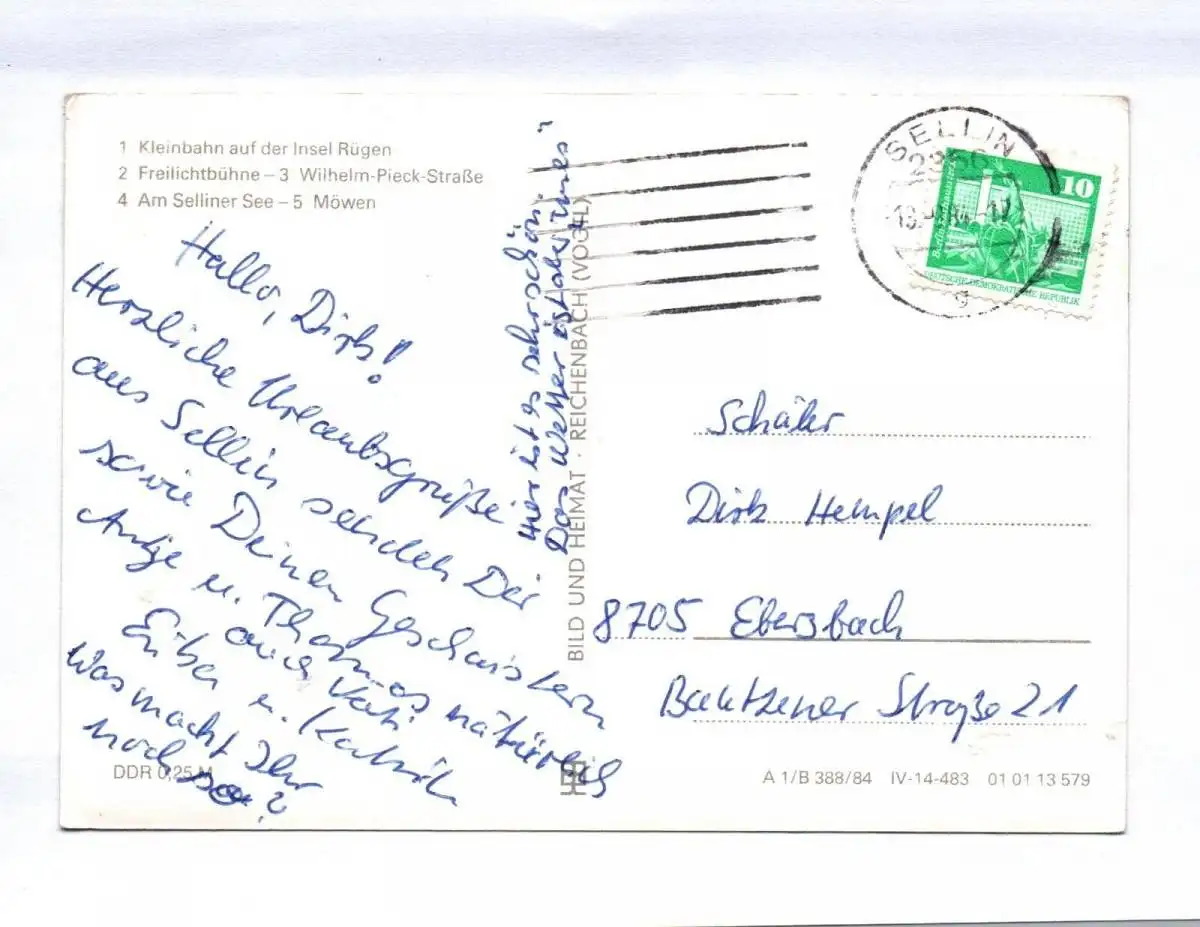 1 Kleinbahn auf der Insel Rügen
2 Freilichtbühne – 3 Wilhelm-Pieck-Straße
4 Am Selliner See – 5 Möwen
Hallo, Dirk!
Herzliche Urlaubsgrüße
aus Sellin senden Dir
sowie Deinen Geschwistern
Antje u. Thomas natürlich
auch Kati
u. Katrin
Was macht Ihr
noch so?
DDR 0,25 M
Hier ist es sehr schön
Das Wetter ist aber
BILD UND HEIMAT · REICHENBACH (VOGTL)
SELLIN
10
DEUTSCHE DEMOKRATISCHE REPUBLIK
Schüler
Dirk Hempel
8705 Ebersbach
Bautzener Straße 21
A 1/B 388/84 IV-14-483 01 01 13 579